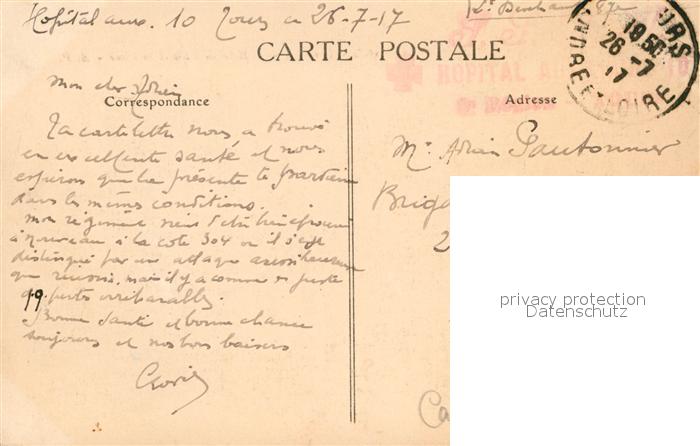 Hopital aux. 10 Tours ce 26-7-17
CARTE POSTALE
TOURS
19 50
26 -7
17
INDRE-ET-LOIRE
HOPITAL
Mon cher Adrien
Correspondance
Adresse
Ta carte lettre nous a trouvé
en excellente santé et nous
espérons que la présente te
dans les mêmes conditions.
Mon régiment vient d'être
à nouveau à la cote 304 où il s'est
distingué par une attaque aussi heureuse
que réussie, mais il y a comme
q.q. pertes irréparables.
Bonne santé et bonne chance
toujours et nos bons baisers
Mr Adrien Pautonnier
Brig
2
Ca
privacy protection
Datenschutz